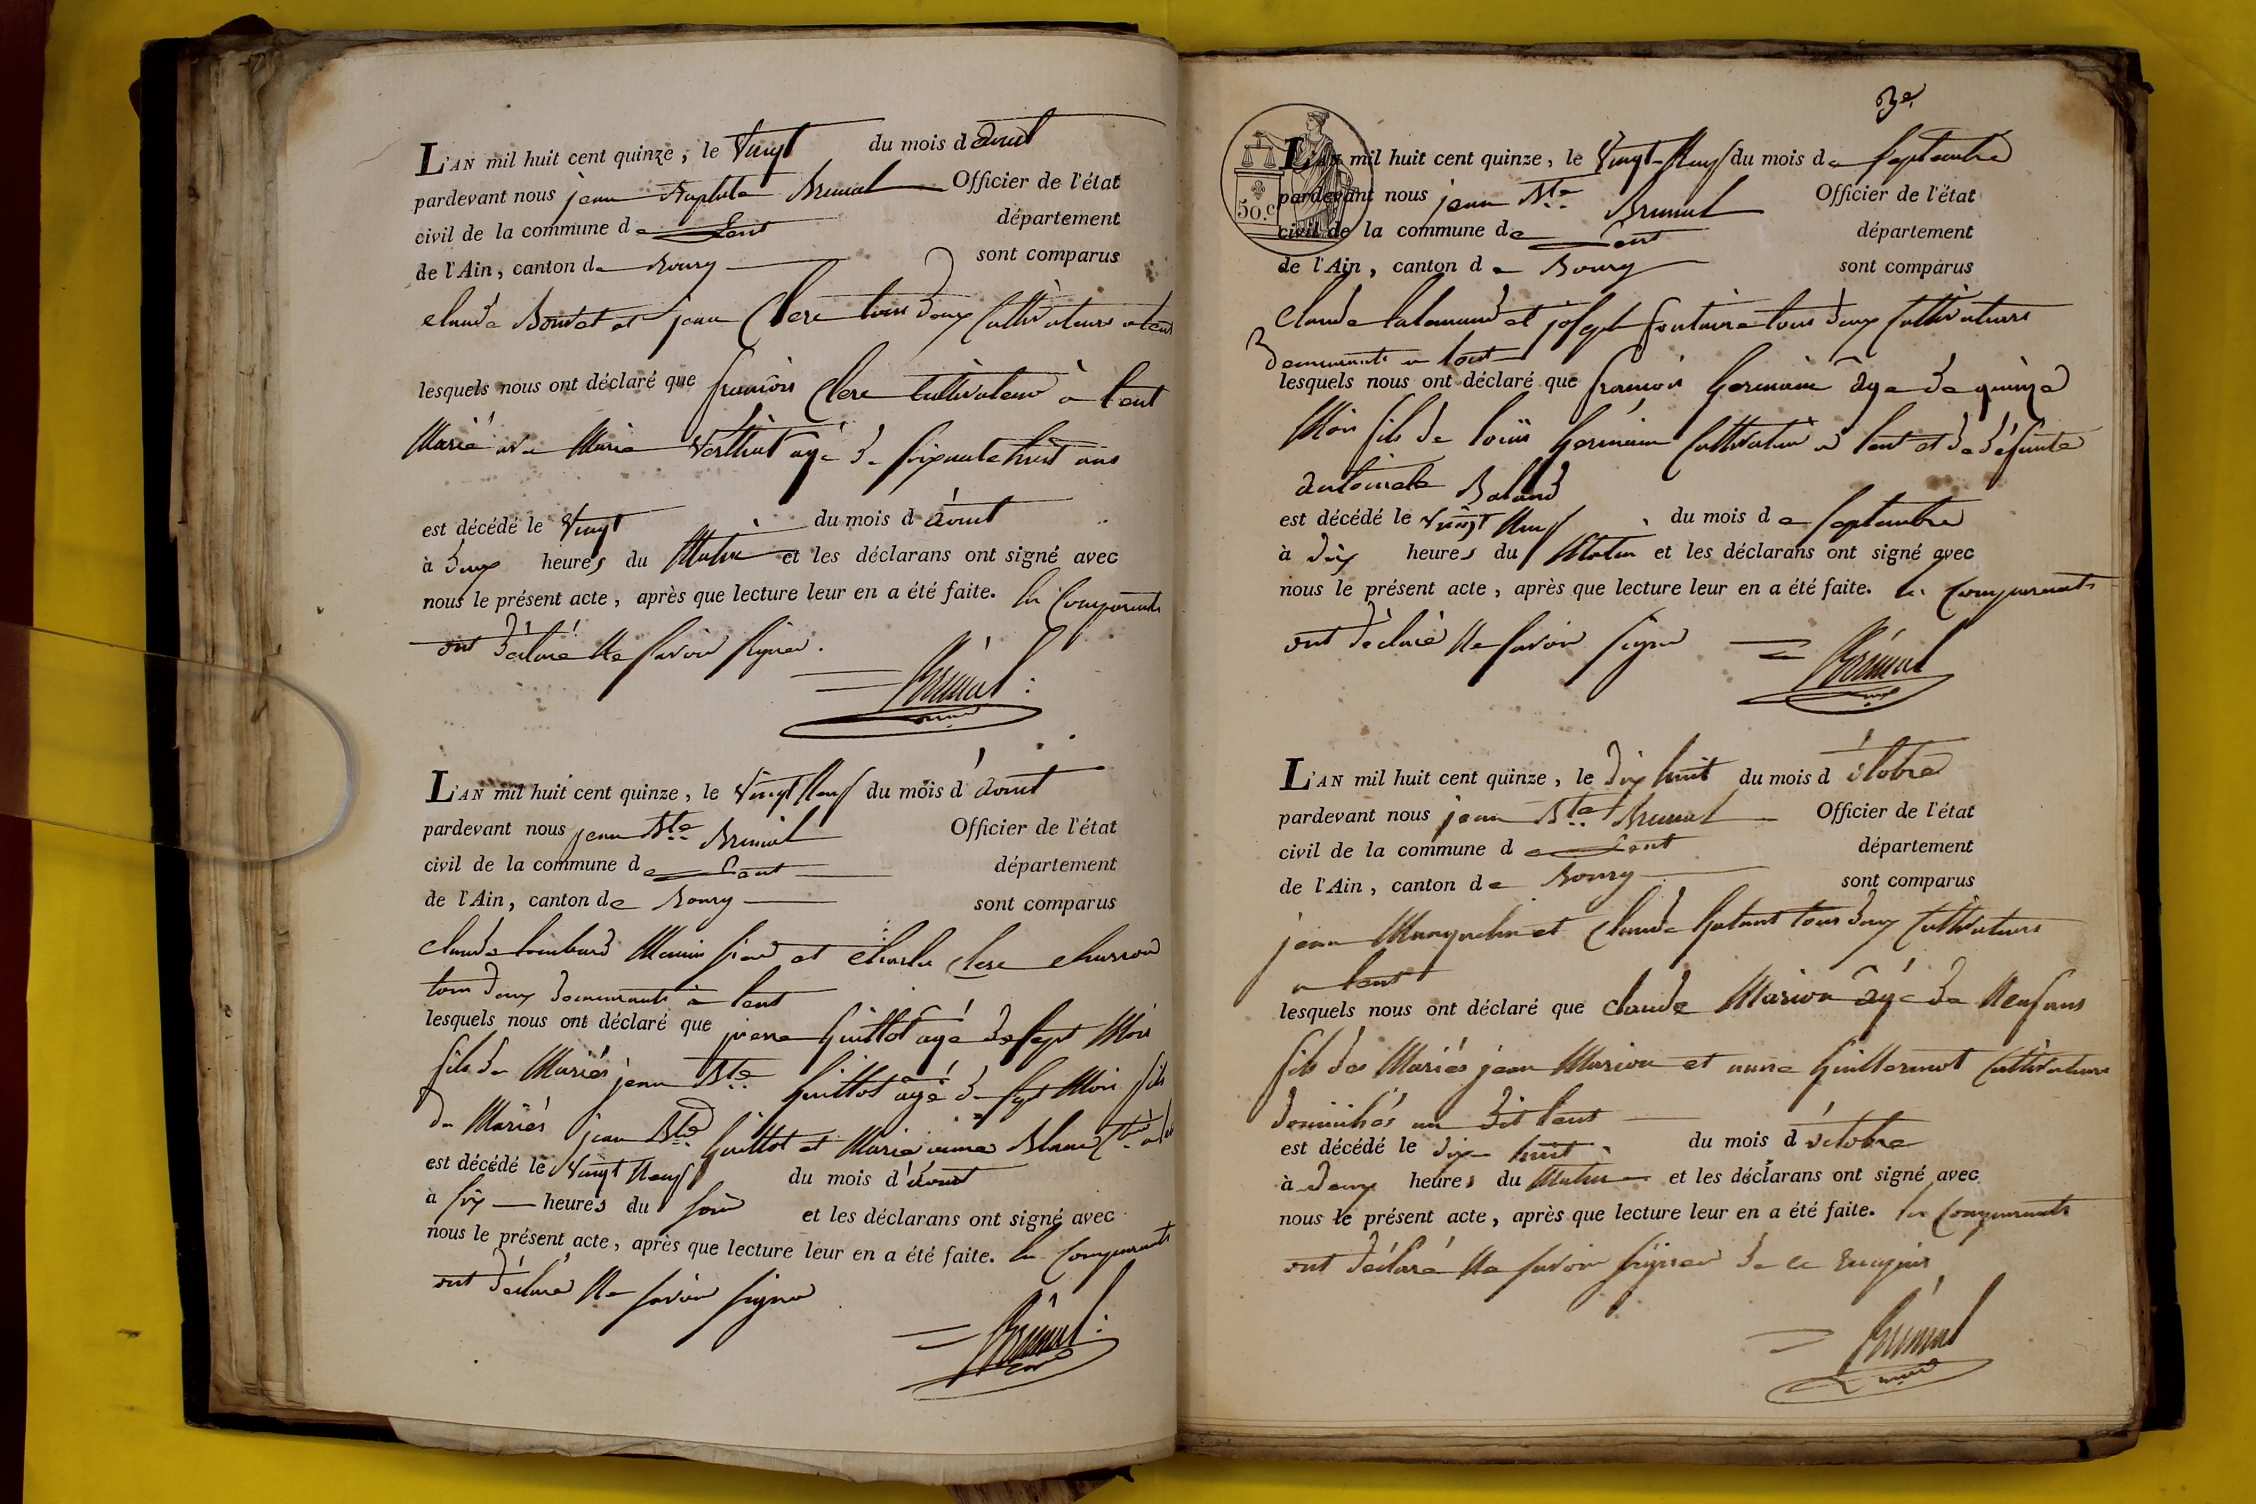 L'AN mil huit cent quinze, le vingt du mois d aout
pardevant nous jean Baptiste Brunel Officier de l'état
civil de la commune de Lent département
de l'Ain, canton de Bourg sont comparus
claude Bouvet et jean Clere tous deux Cultivateurs a lent
lesquels nous ont déclaré que françois Clere Cultivateur à lent
Marié avec Marie agé de soixante huit ans
est décédé le vingt du mois d aout
à deux heures du Matin et les déclarans ont signé avec
nous le présent acte, après que lecture leur en a été faite. les Comparants
ont déclaré Ne savoir signer.
L'AN mil huit cent quinze, le vingt Neuf du mois d'aout
pardevant nous jean Bte Brunel Officier de l'état
civil de la commune de Lent département
de l'Ain, canton de Bourg sont comparus
claude lombard et Charles Clere charron
tous deux demeurants à lent
lesquels nous ont déclaré que pierre Guillot agé de sept Mois
fils des Mariés jean Bte Guillot agé de sept Mois fils
des Mariés jean Bte Guillot et Marie anne Blanc
est décédé le vingt Neuf du mois d'aout
à six heures du soir et les déclarans ont signé avec
nous le présent acte, après que lecture leur en a été faite. les Comparants
ont déclaré Ne savoir signer
3e.
50.c
L'AN mil huit cent quinze, le vingt-Neuf du mois de septembre
pardevant nous jean Bte Brunel Officier de l'état
civil de la commune de Lent département
de l'Ain, canton de Bourg sont comparus
Claude et joseph fontaine tous deux Cultivateurs
demeurants a lent
lesquels nous ont déclaré que françois Germain âgé de quinze
Mois fils de louis Germain Cultivateur a lent et de défunte
antoinette
est décédé le vingt Neuf du mois de septembre
à dix heures du Matin et les déclarans ont signé avec
nous le présent acte, après que lecture leur en a été faite. les Comparants
ont déclaré Ne savoir signer
L'AN mil huit cent quinze, le dix huit du mois d'octobre
pardevant nous jean Bte Brunel Officier de l'état
civil de la commune de Lent département
de l'Ain, canton de Bourg sont comparus
jean et Claude tous deux Cultivateurs
a lent
lesquels nous ont déclaré que claude Marion âgé de Neuf ans
fils des Mariés jean Marion et anne Guillermot Cultivateurs
domiciliés au dit lent
est décédé le dix-huit du mois d'octobre
à deux heures du Matin et les déclarans ont signé avec
nous le présent acte, après que lecture leur en a été faite. les Comparants
ont déclaré Ne savoir signer de ce requis